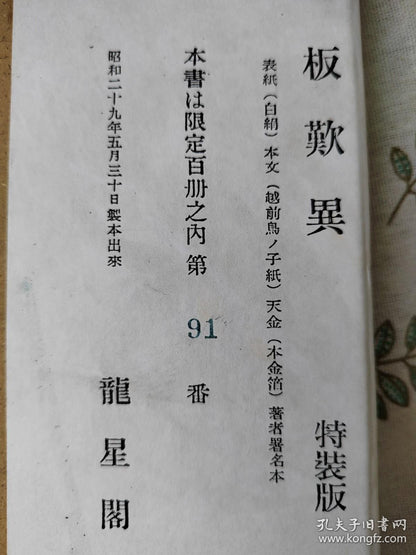 板歎異 特装版
表紙(白絹)本文(越前鳥ノ子紙)天金(本金箔)著者署名本
本書は限定百册之内 第 91 番
昭和二十九年五月三十日製本出來
龍星閣
孔夫子旧书网
www.kongfz.com